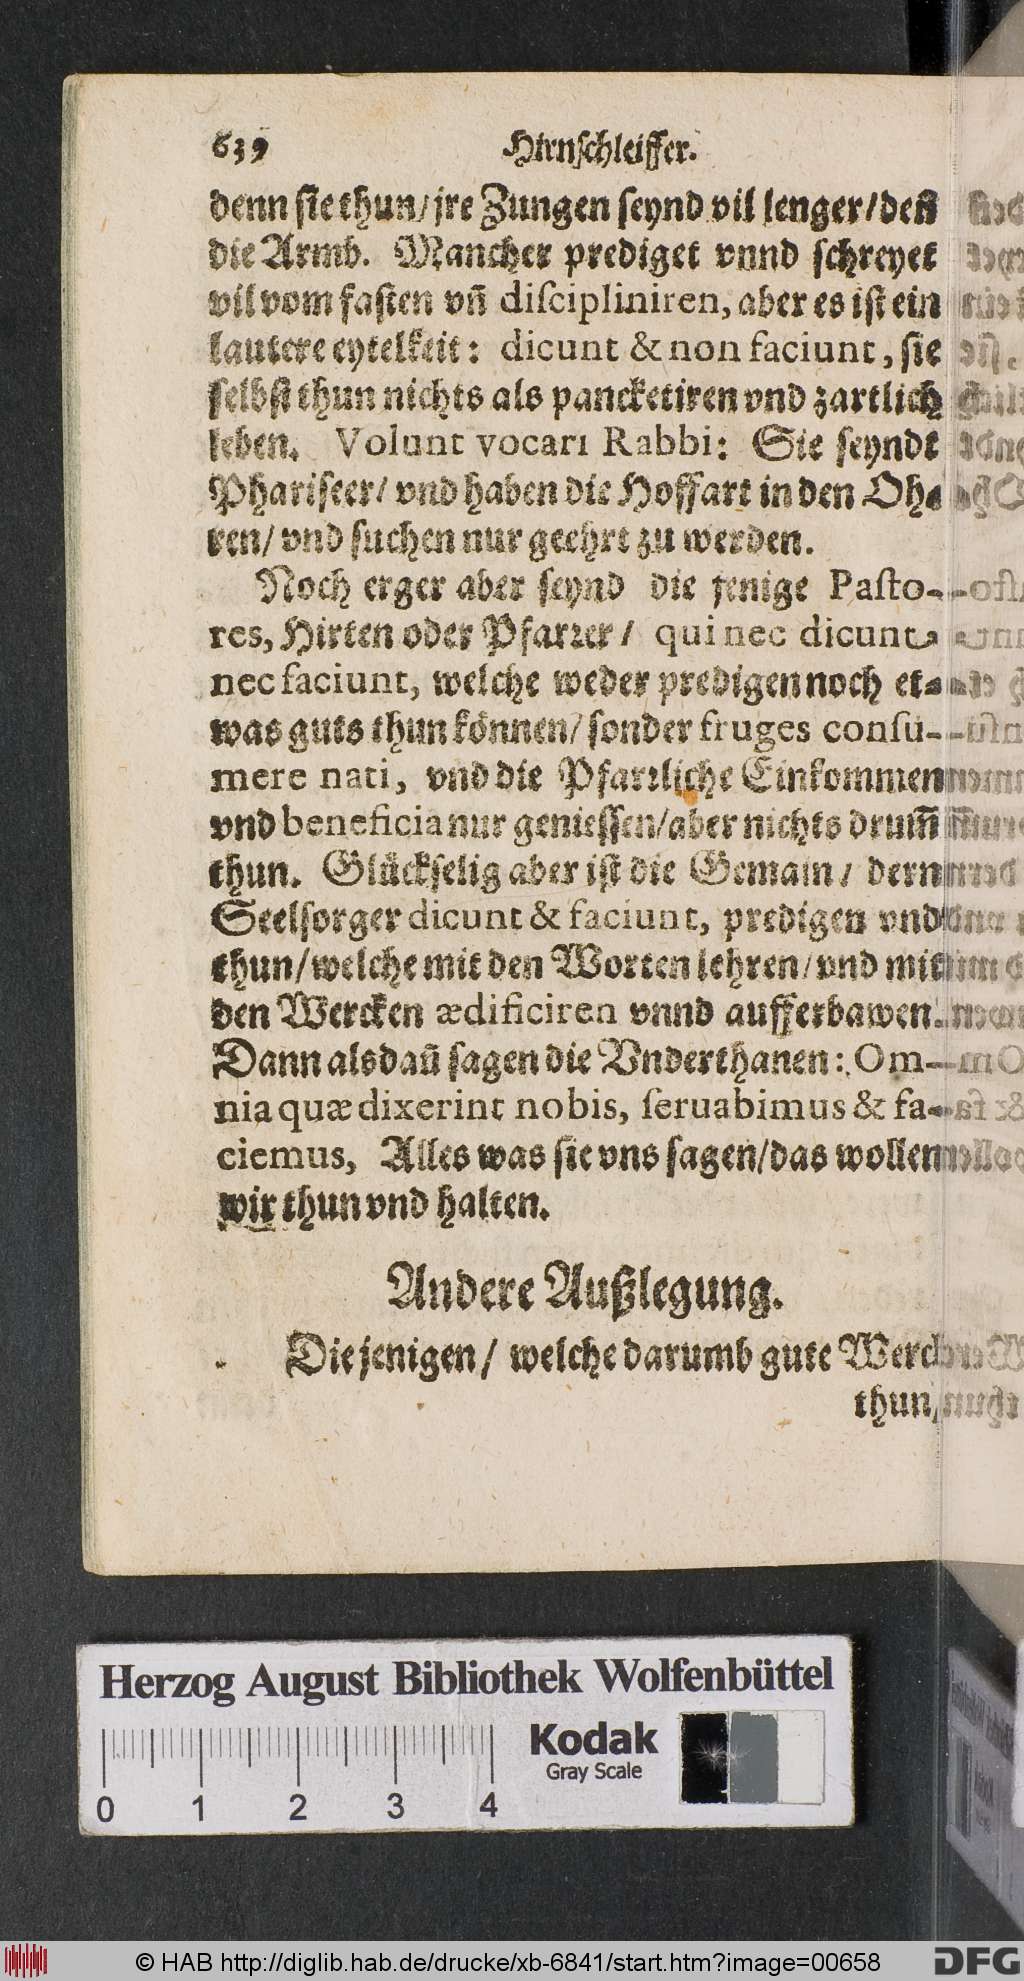 639 Hirnschleiffer.
denn sie thun/ jre Zungen seynd vil lenger/ deñ
die Armb. Mancher prediget vnnd schreyet
vil vom fasten vñ diſcipliniren, aber es ist ein
lautere eytelkeit: dicunt & non faciunt, sie
selbst thun nichts als pancketiren vnd zartlich
leben. Volunt vocari Rabbi: Sie seyndt
Phariseer/ vnd haben die Hoffart in den Oh-
ren/ vnd suchen nur geehrt zu werden.
Noch erger aber seynd die jenige Paſto-
res, Hirten oder Pfarrer/ qui nec dicunt
nec faciunt, welche weder predigen noch et-
was guts thun können/ sonder fruges conſu-
mere nati, vnd die Pfarrliche Einkommen
vnd beneficia nur geniessen/ aber nichts drum̃
thun. Glückselig aber ist die Gemain/ dern
Seelsorger dicunt & faciunt, predigen vnd
thun/ welche mit den Worten lehren/ vnd mit
den Wercken ædificiren vnnd aufferbawen.
Dann alsdañ sagen die Vnderthanen: Om-
nia quæ dixerint nobis, ſeruabimus & fa-
ciemus, Alles was sie vns sagen/ das wollen
wir thun vnd halten.
Andere Außlegung.
Die jenigen/ welche darumb gute Werck
thun/
Herzog August Bibliothek Wolfenbüttel
Kodak
Gray Scale
0 1 2 3 4
© HAB http://diglib.hab.de/drucke/xb-6841/start.htm?image=00658
DFG